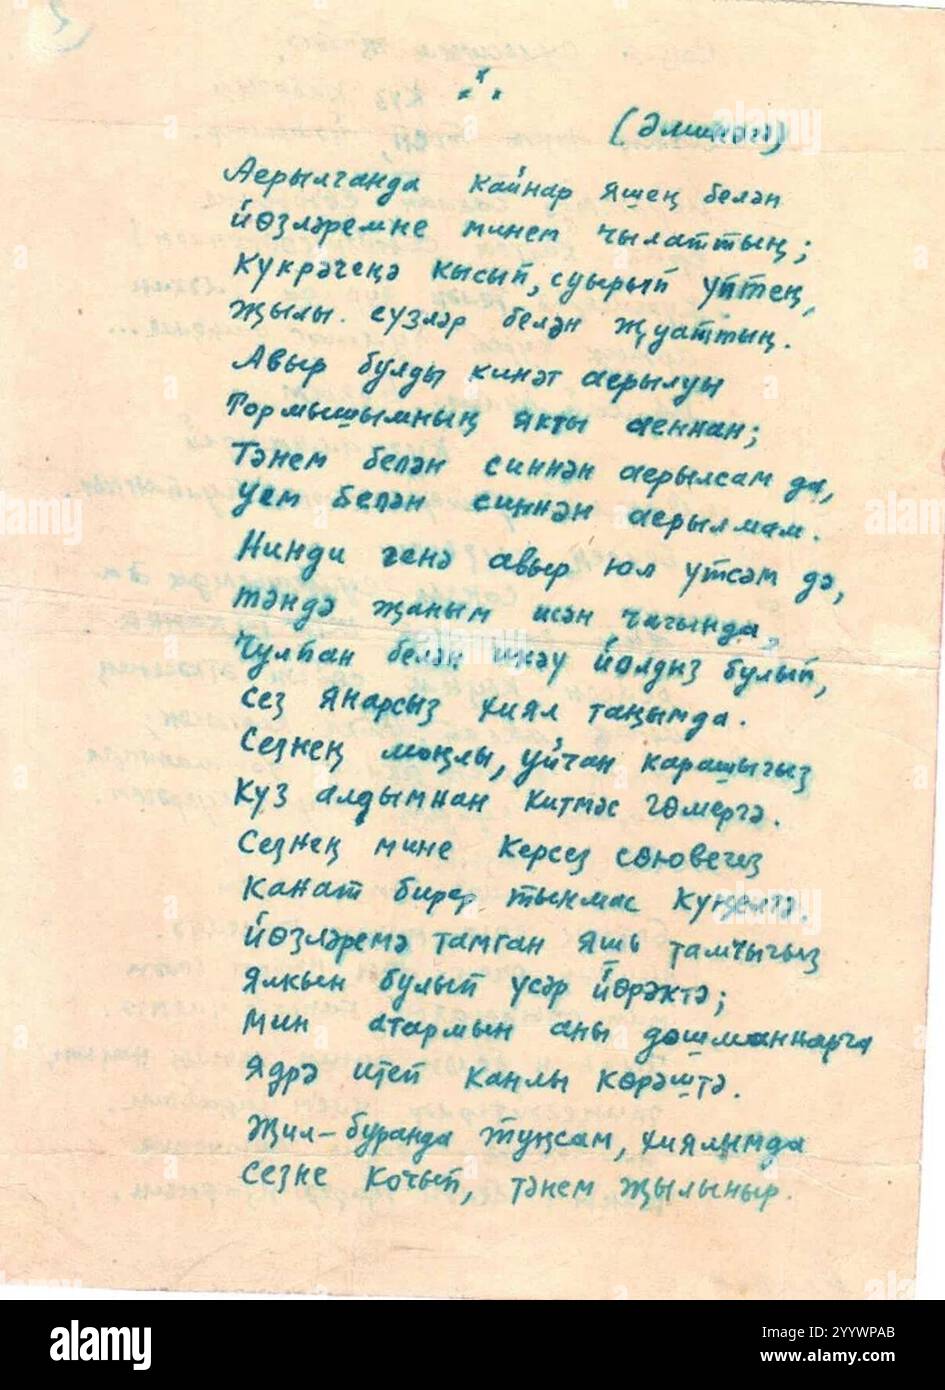 2
* * *
(Әминәгә)
Аерылганда кайнар яшең белән
Йөзләремне минем чылаттың;
Күкрәгеңә кысып, суырып үптең,
Җылы сүзләр белән җуаттың.
Авыр булды кинәт аерылуы
Тормышымның якты аеннан;
Тәнем белән синнән аерылсам да,
Уем белән синнән аерылмам.
Нинди генә авыр юл үтсәм дә,
Тәндә җаным исән чагында,
Чулпан белән икәү йолдыз булып,
Сез янарсыз хиял таңымда.
Сезнең моңлы, уйчан карашыгыз
Күз алдымнан китмәс гөмергә.
Сезнең мине керсез сөювегез
Канат бирер тынмас күңелгә.
Йөзләремә тамган яшь тамчыгыз
Ялкын булып үсәр йөрәктә;
Мин атармын аны дошманнарга
Ядрә итеп канлы көрәштә.
Җил-буранда туңсам, хиялымда
Сезне кочып, тәнем җылыныр.
alamy
Image ID: 2YYWPAB
www.alamy.com